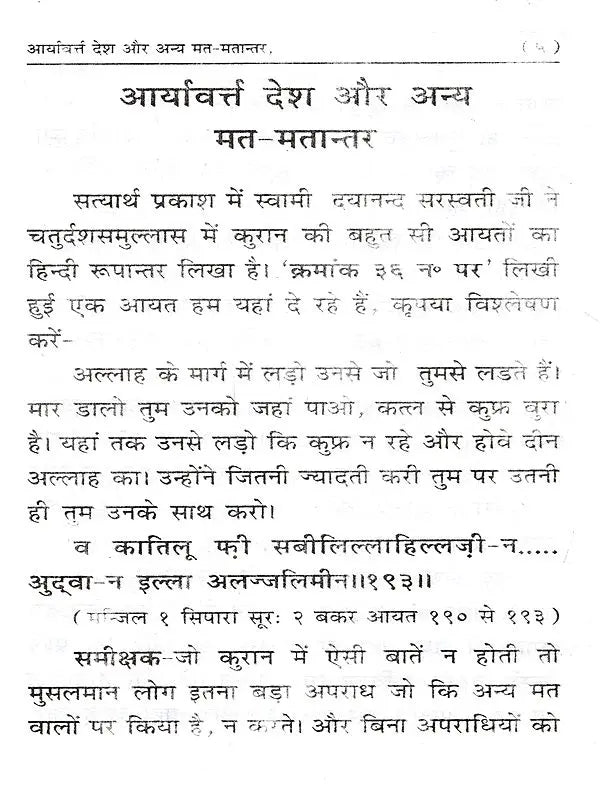 आर्यावर्त्त देश और अन्य मत-मतान्तर, (५)
आर्यावर्त्त देश और अन्य
मत-मतान्तर
सत्यार्थ प्रकाश में स्वामी दयानन्द सरस्वती जी ने
चतुर्दशसमुल्लास में कुरान की बहुत सी आयतों का
हिन्दी रूपान्तर लिखा है। 'क्रमांक ३६ न० पर' लिखी
हुई एक आयत हम यहां दे रहे हैं, कृपया विश्लेषण
करें-
अल्लाह के मार्ग में लड़ो उनसे जो तुमसे लडते हैं।
मार डालो तुम उनको जहां पाओ, कत्ल से कुफ्र बुरा
है। यहां तक उनसे लड़ो कि कुफ्र न रहे और होवे दीन
अल्लाह का। उन्होंने जितनी ज्यादती करी तुम पर उतनी
ही तुम उनके साथ करो।
व कातिलू फ़ी सबीलिल्लाहिल्लज़ी-न.....
अुद्वा-न इल्ला अलज्जलिमीन।।१९३।।
(मन्जिल १ सिपारा सूरः २ बकर आयत १९० से १९३)
समीक्षक-जो कुरान में ऐसी बातें न होती तो
मुसलमान लोग इतना बड़ा अपराध जो कि अन्य मत
वालों पर किया है, न करते। और बिना अपराधियों को